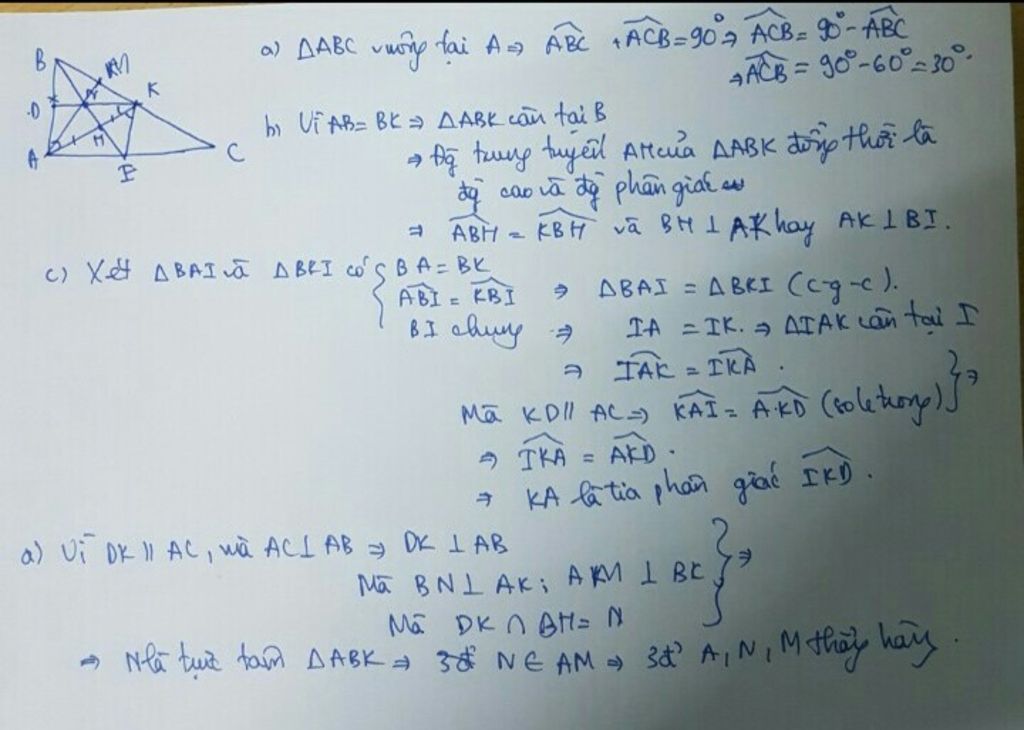 B
M
D
N
K
H
A
I
C
a) ΔABC vuông tại A ⇒ \widehat{ABC} + \widehat{ACB} = 90° ⇒ \widehat{ACB} = 90° - \widehat{ABC}
⇒ \widehat{ACB} = 90° - 60° = 30°.
b) Vì AB = BK ⇒ ΔABK cân tại B
⇒ Đg trung tuyến AH của ΔABK đồng thời là
đg cao và đg phân giác
⇒ \widehat{ABH} = \widehat{KBH} và BH ⊥ AK hay AK ⊥ BI.
c) Xét ΔBAI và ΔBKI có { BA = BK
\widehat{ABI} = \widehat{KBI} ⇒ ΔBAI = ΔBKI (c-g-c).
BI chung ⇒ IA = IK. ⇒ ΔIAK cân tại I
⇒ \widehat{IAK} = \widehat{IKA}.
Mà KD // AC ⇒ \widehat{KAI} = \widehat{AKD} (so le trong) } ⇒
⇒ \widehat{IKA} = \widehat{AKD}.
⇒ KA là tia phân giác \widehat{IKD}.
a) Vì DK // AC, mà AC ⊥ AB ⇒ DK ⊥ AB
Mà BN ⊥ AK; AM ⊥ BC } ⇒
Mà DK ∩ BH = N
⇒ N là trực tâm ΔABK ⇒ N ∈ AM ⇒ 3đ' A, N, M thẳng hàng.